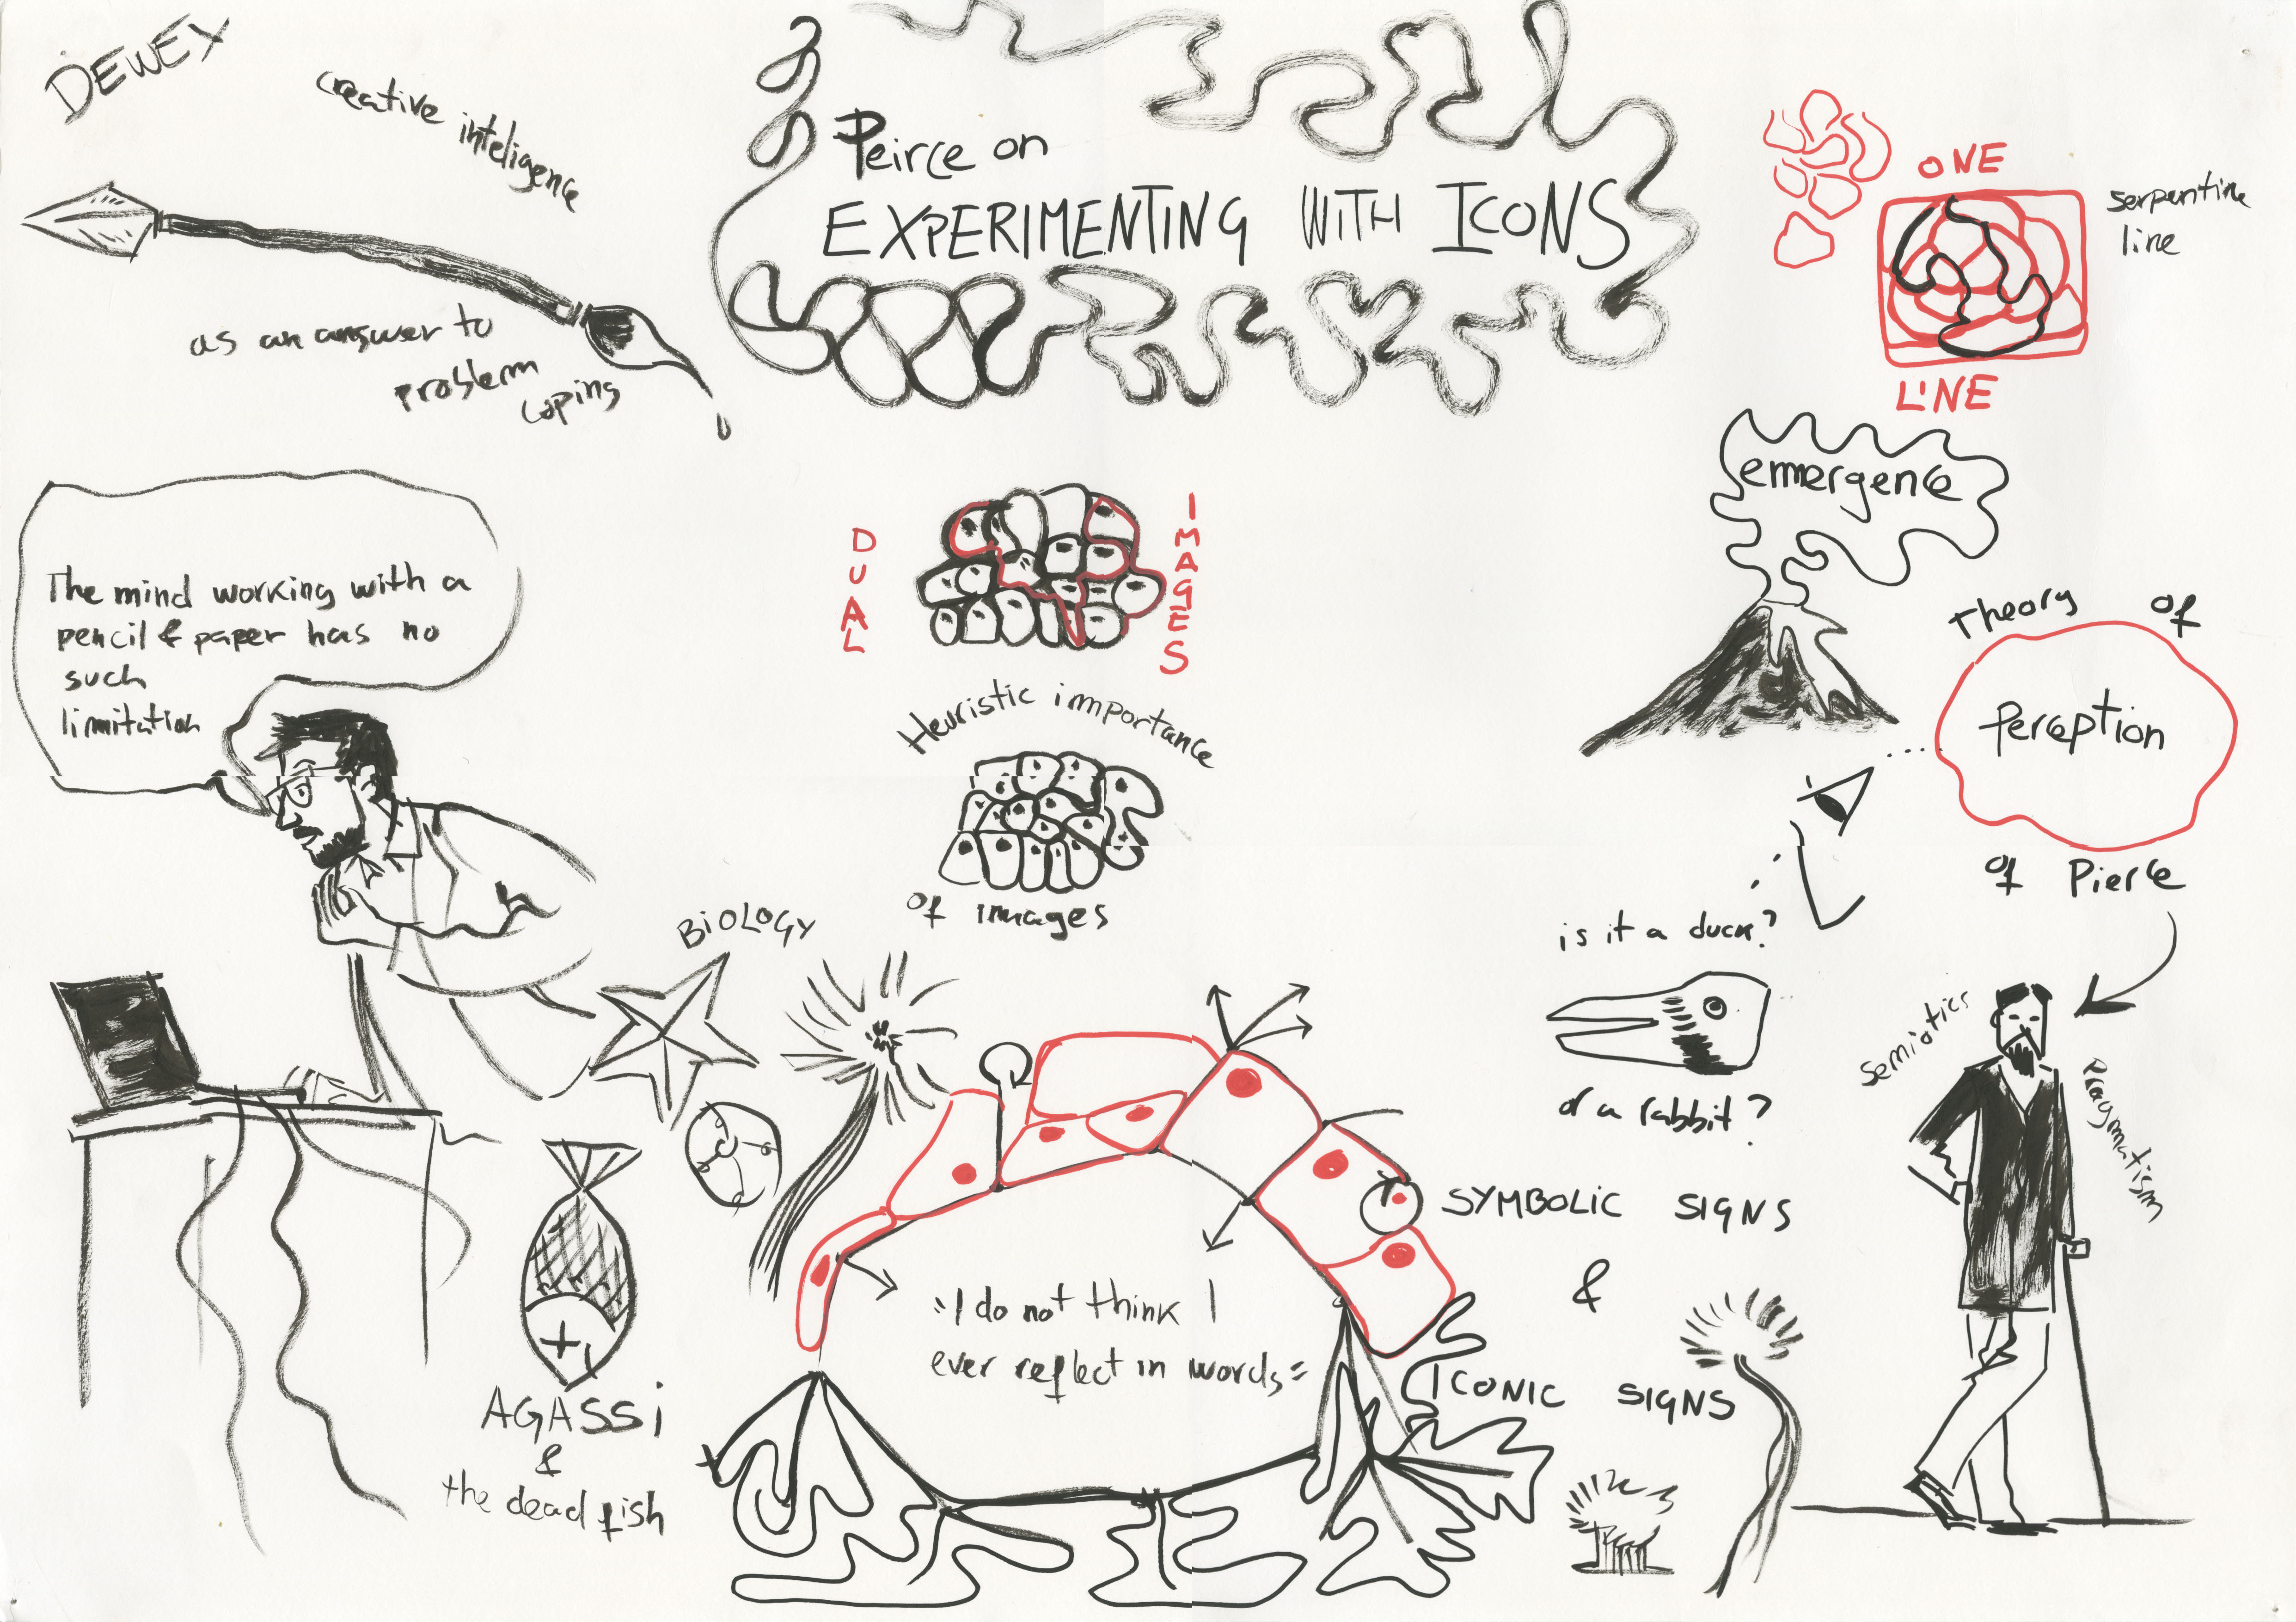 DEWEY
creative inteligence
as an answer to
problem
coping
Peirce on
EXPERIMENTING WITH ICONS
ONE
LINE
serpentine
line
emergence
Theory of
Perception
of Pierce
The mind working with a
pencil & paper has no
such
limitation
DUAL
IMAGES
Heuristic importance
of images
BiOLOGY
is it a duck?
or a rabbit?
Semiotics
Pragmatism
SYMBOLIC SIGNS
&
ICONIC SIGNS
"I do not think I
ever reflect in words"
AGASSi
&
the dead fish